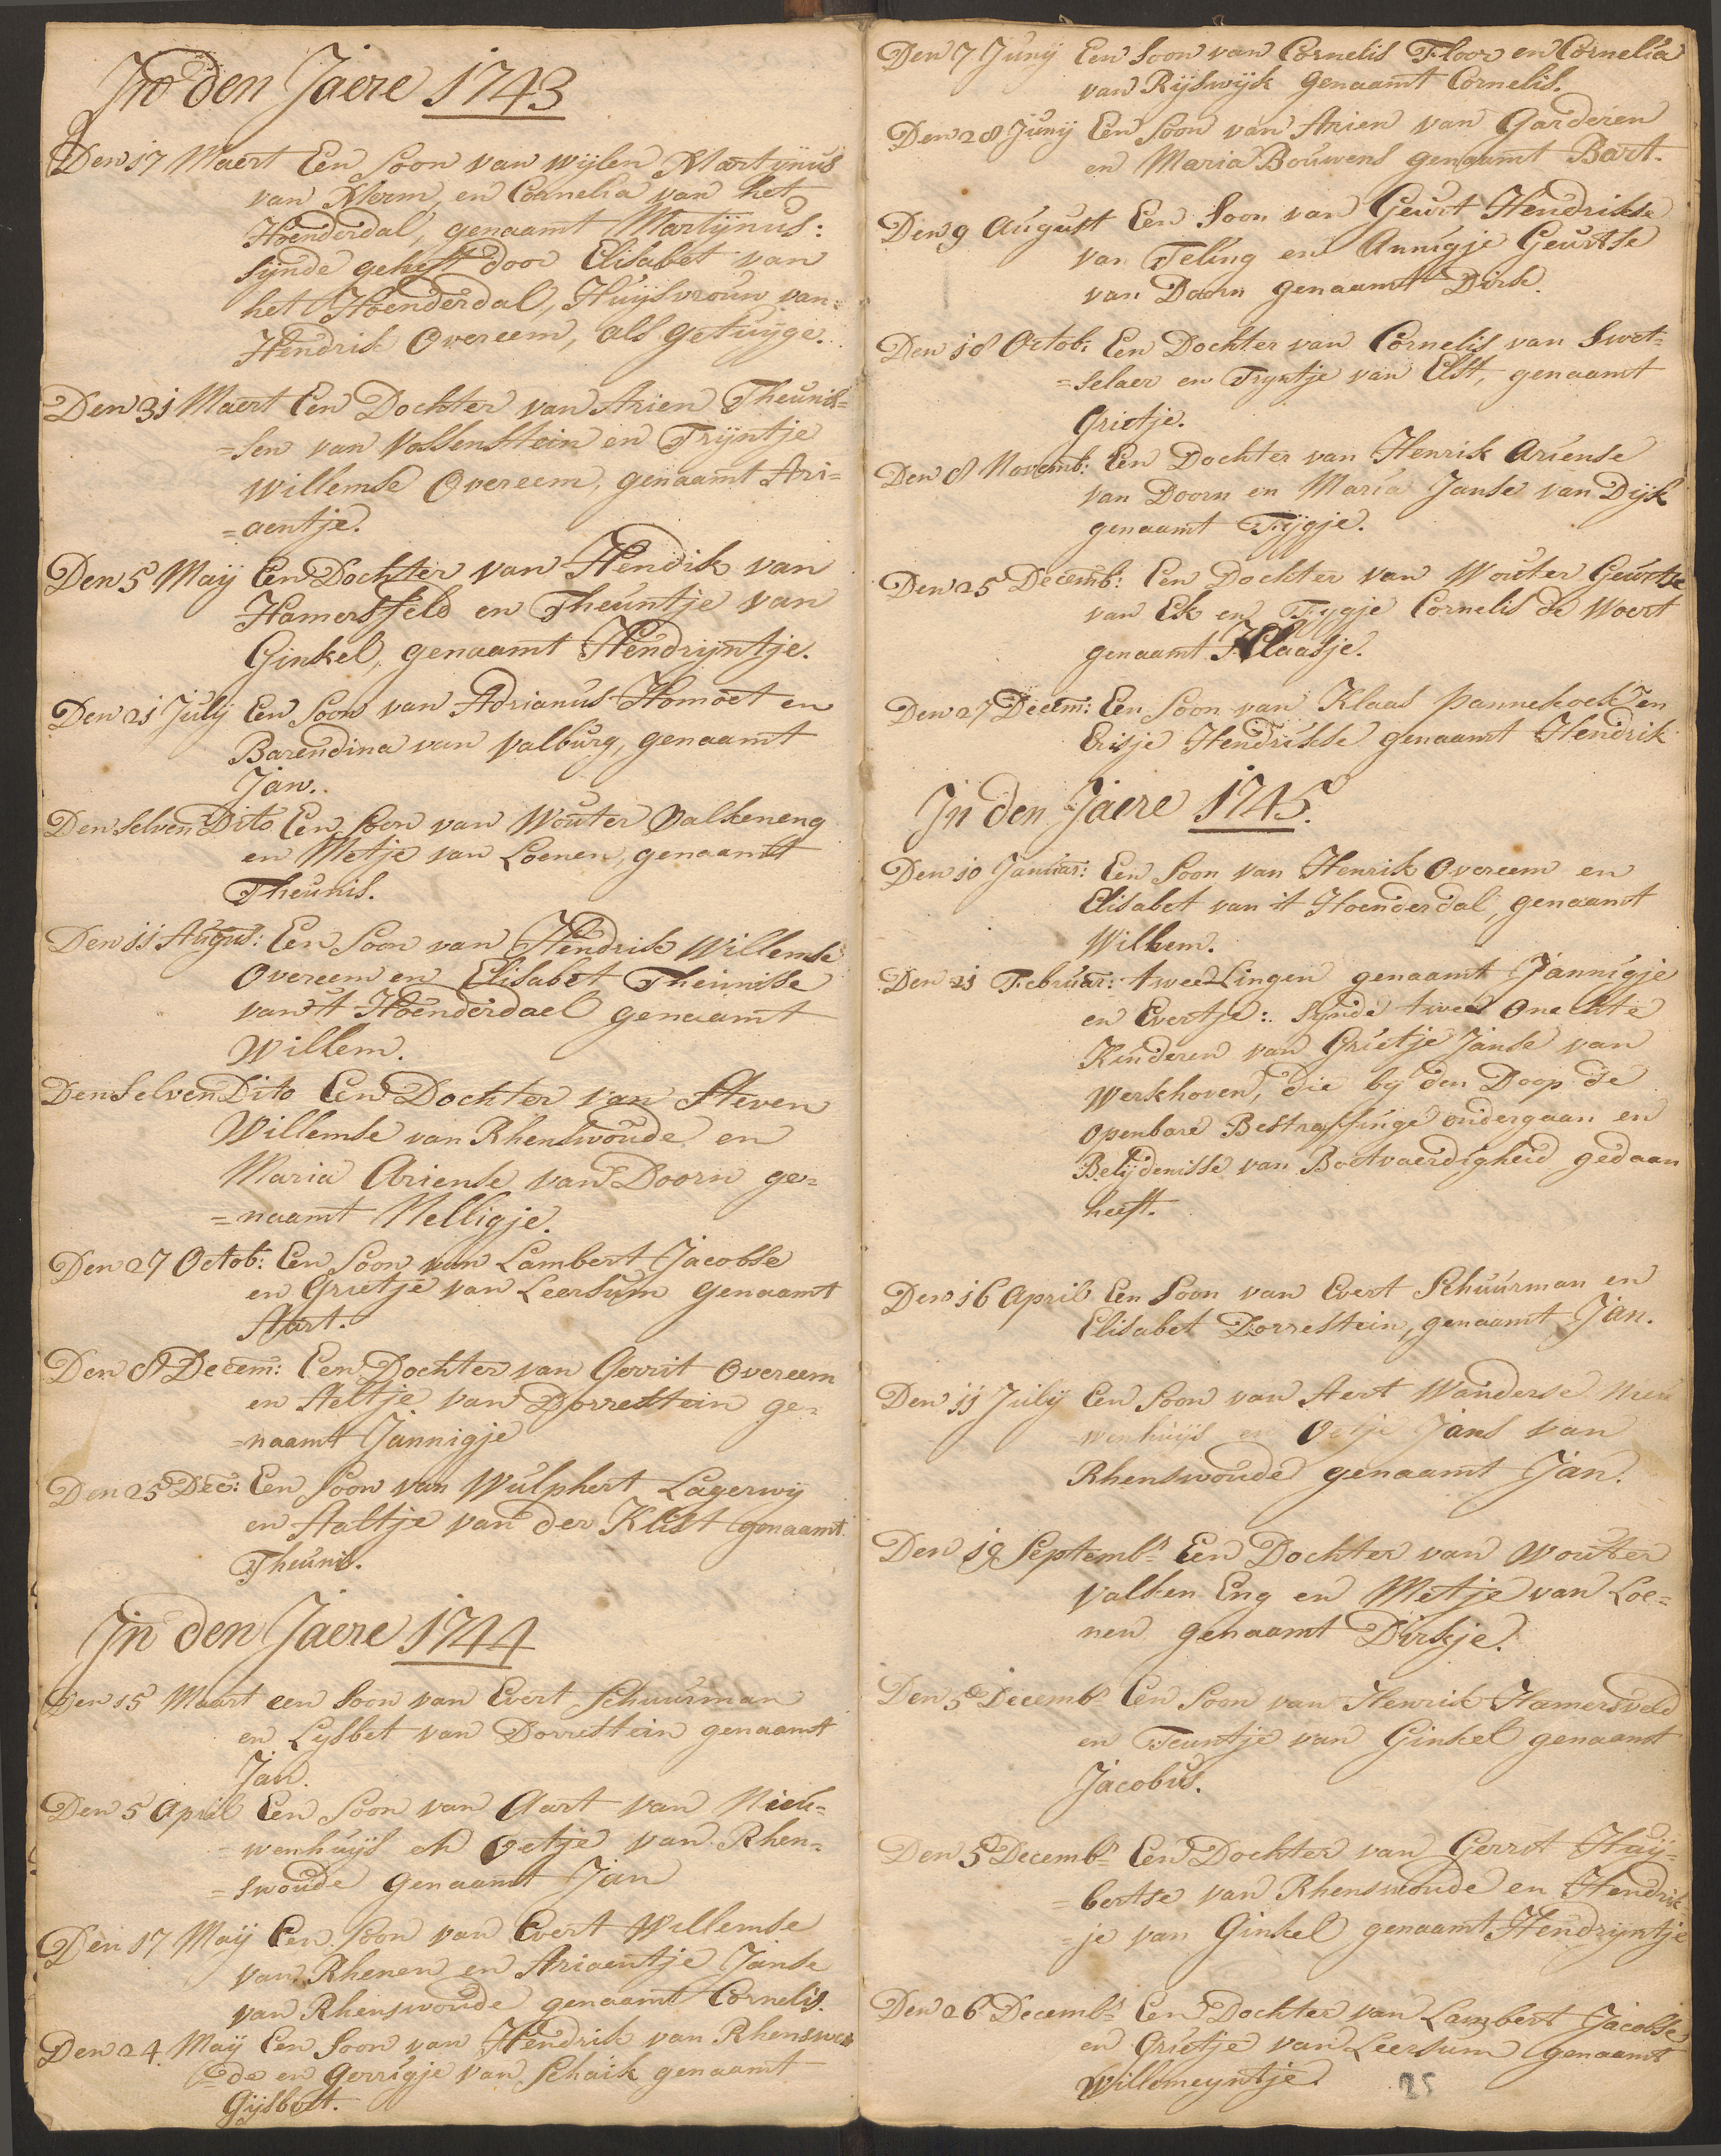 In den Jaere 1743
Den 17 Maert Een Soon van wijlen Martijnus
van Merm, en Cornelia van het
Hoenderdal, genaamt Martijnus:
sijnde geheft door Elisabet van
het Hoenderdal, Huijsvrouw van
Hendrik Overeem, als getuijge.
Den 31 Maert Een Dochter van Arien Theunis=
=sen van Vossenstein en Trijntje
Willemse Overeem, genaamt Ari=
=aentje.
Den 5 Maij Een Dochter van Hendik van
Hamersfeld en Theuntje van
Ginkel, genaamt Hendrijntje.
Den 21 Julij Een Soon van Adrianus Homoet en
Barendina van Valburg, genaamt
Jan.
Den Selven Dito Een Soon van Wouter Valkeneng
en Metje van Loenen, genaamt
Theunis.
Den 11 Augus: Een Soon van Hendrik Willemse
Overeem en Elisabet Theunisse
van 't Hoenderdael genaamt
Willem.
Den Selven Dito Een Dochter van Steven
Willemse van Rhenswoude en
Maria Ariense van Doorn ge=
=naamt Nelligje.
Den 27 Octob: Een Soon van Lambert Jacobse
en Grietje van Leersum genaamt
Aart.
Den 8 Decem: Een Dochter van Gerrit Overeem
en Aeltje van Dorrestein ge=
=naamt Jannigje
Den 25 Dec: Een Soon van Wulphert Lagerwij
en Aaltje van der Klist genaamt
Theunis.
In den Jaere 1744
Den 15 Maart een Soon van Evert Schuurman
en Lysbet van Dorrestein genaamt
Jan.
Den 5 April Een Soon van Aart van Nieu=
=wenhuijs en Oetje van Rhen=
=swoude genaamt Jan
Den 17 Maij Een Soon van Evert Willemse
van Rhenen en Ariaentje Janse
van Rhenswoude genaamt Cornelis.
Den 24 Maij Een Soon van Hendrik van Rhenswou
=de en Gerrigje van Schaik genaamt
Gijsbert.
Den 7 Junij Een Soon van Cornelis Floor en Cornelia
van Rijswijk genaamt Cornelis.
Den 28 Junij Een Soon van Arien van Garderen
en Maria Bouwens genaamt Bart.
Den 9 August Een Soon van Geurt Hendrikse
van Teling en Annigje Geurtse
van Doorn genaamt Dirk.
Den 18 Octob: Een Dochter van Cornelis van Swet=
=selaer en Tryntje van Elst, genaamt
Grietje.
Den 8 Novemb: Een Dochter van Henrik Ariense
van Doorn en Maria Janse van Dijk
genaamt Fijgje.
Den 25 Decemb: Een Dochter van Wouter Geurtse
van Ek en Fygje Cornelis de Woert
genaamt Klaasje.
Den 27 Decem: Een Soon van Klaas Pannekoek en
Erisje Hendrikse genaamt Hendrik
In den Jaere 1745.
Den 10 Januar: Een Soon van Henrik Overeem en
Elisabet van 't Hoenderdal, genaamt
Willem.
Den 21 Februar: tweelingen genaamt Jannigje
en Evertje: Synde twee Onechte
Kinderen van Grietje Janse van
Werkhoven, die by den Doop de
openbare Bestraffinge ondergaan en
Belijdenisse van Boetvaerdigheid gedaan
heeft.
Den 16 April Een Soon van Evert Schuurman en
Elisabet Dorrestein, genaamt Jan.
Den 11 Julij Een Soon van Aert Wanderse Nieu
wenhuijs en Oetje Jans van
Rhenswoude genaamt Jan.
Den 19 Septembr Een Dochter van Wouter
Valken Eng en Metje van Loe=
nen genaamt Dirkje.
Den 5e Decembr Een Soon van Henrik Hamersveld
en Teuntje van Ginkel genaamt
Jacobus.
Den 5 Decembr Een Dochter van Gerrit Huij=
=bertse van Rhenswoude en Hendrik
=je van Ginkel genaamt Hendrijntje
Den 26 Decembr Een Dochter van Lambert Jacobse
en Grietje van Leersum genaamt
Willemeyntje.
25